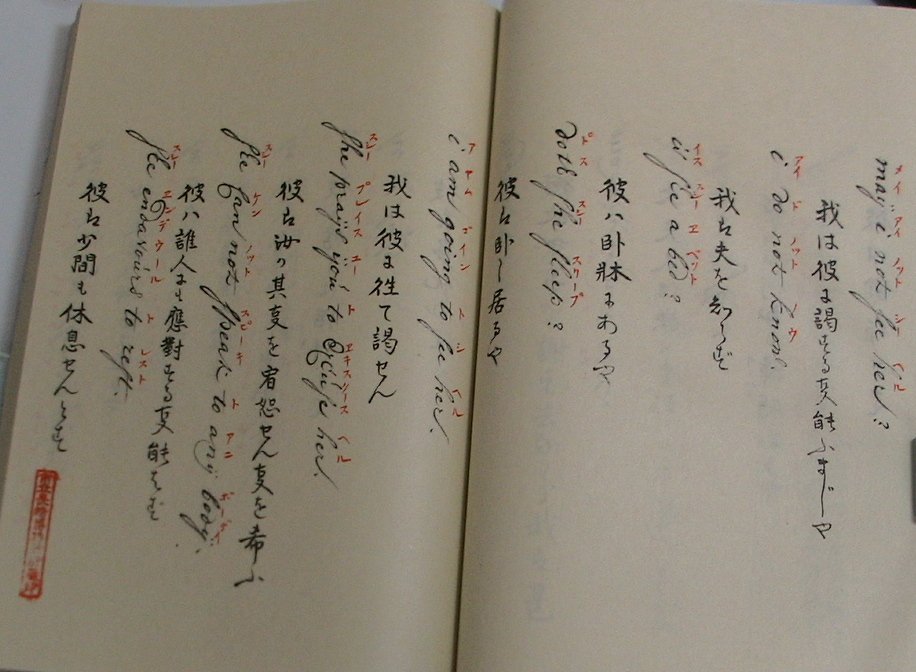 メイ アイ ノット シー ハル
maÿ i not see her?
我は彼に謁する事能ふまじや
アイ ド ノット ノウ
i do not know.
我は夫を知らず
イス スー エ ベット
is she a bed?
彼ハ臥牀にあるや
ドス スー スリープ
doth she sleep?
彼は臥し居るや
ア ヤム ゴイン ト シ ハル
i am going to see her.
我は彼に往て謁せん
スー プレイス ユー ト エキスキース ハル
She praÿs ÿou to Excuse her.
彼は汝の其事を宥恕せん事を希ふ
スー ケン ノット スピーキ ト アニ ボーデイ
She Can not speak to anÿ bodÿ.
彼ハ誰人にも應對する事能はず
スー エンデウール ト レスト
She endavours to rest.
彼は少間も休息せんとす